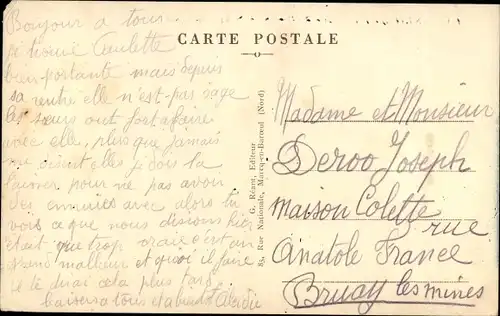 Bonjour a tous
CARTE POSTALE
bien portante mais depuis
sa rentré elle n'est pas sage
les sœurs ont fort a faire
avec elle, plus que jamais
me disent elles je dois la
laisser pour ne pas avoir
des ennuies avec alors tu
vois ce que nous disions hier
n'était que trop vraie c'est un
grand malheur et quoi il faire
je te dirai cela plus tard
baisers a tous et a bientot
G. Réant, Editeur
83, Rue Nationale, Marcq-en-Barœul (Nord)
Madame et Monsieur
Deroo Joseph
maison Colette
rue
Anatole France
Bruay les mines